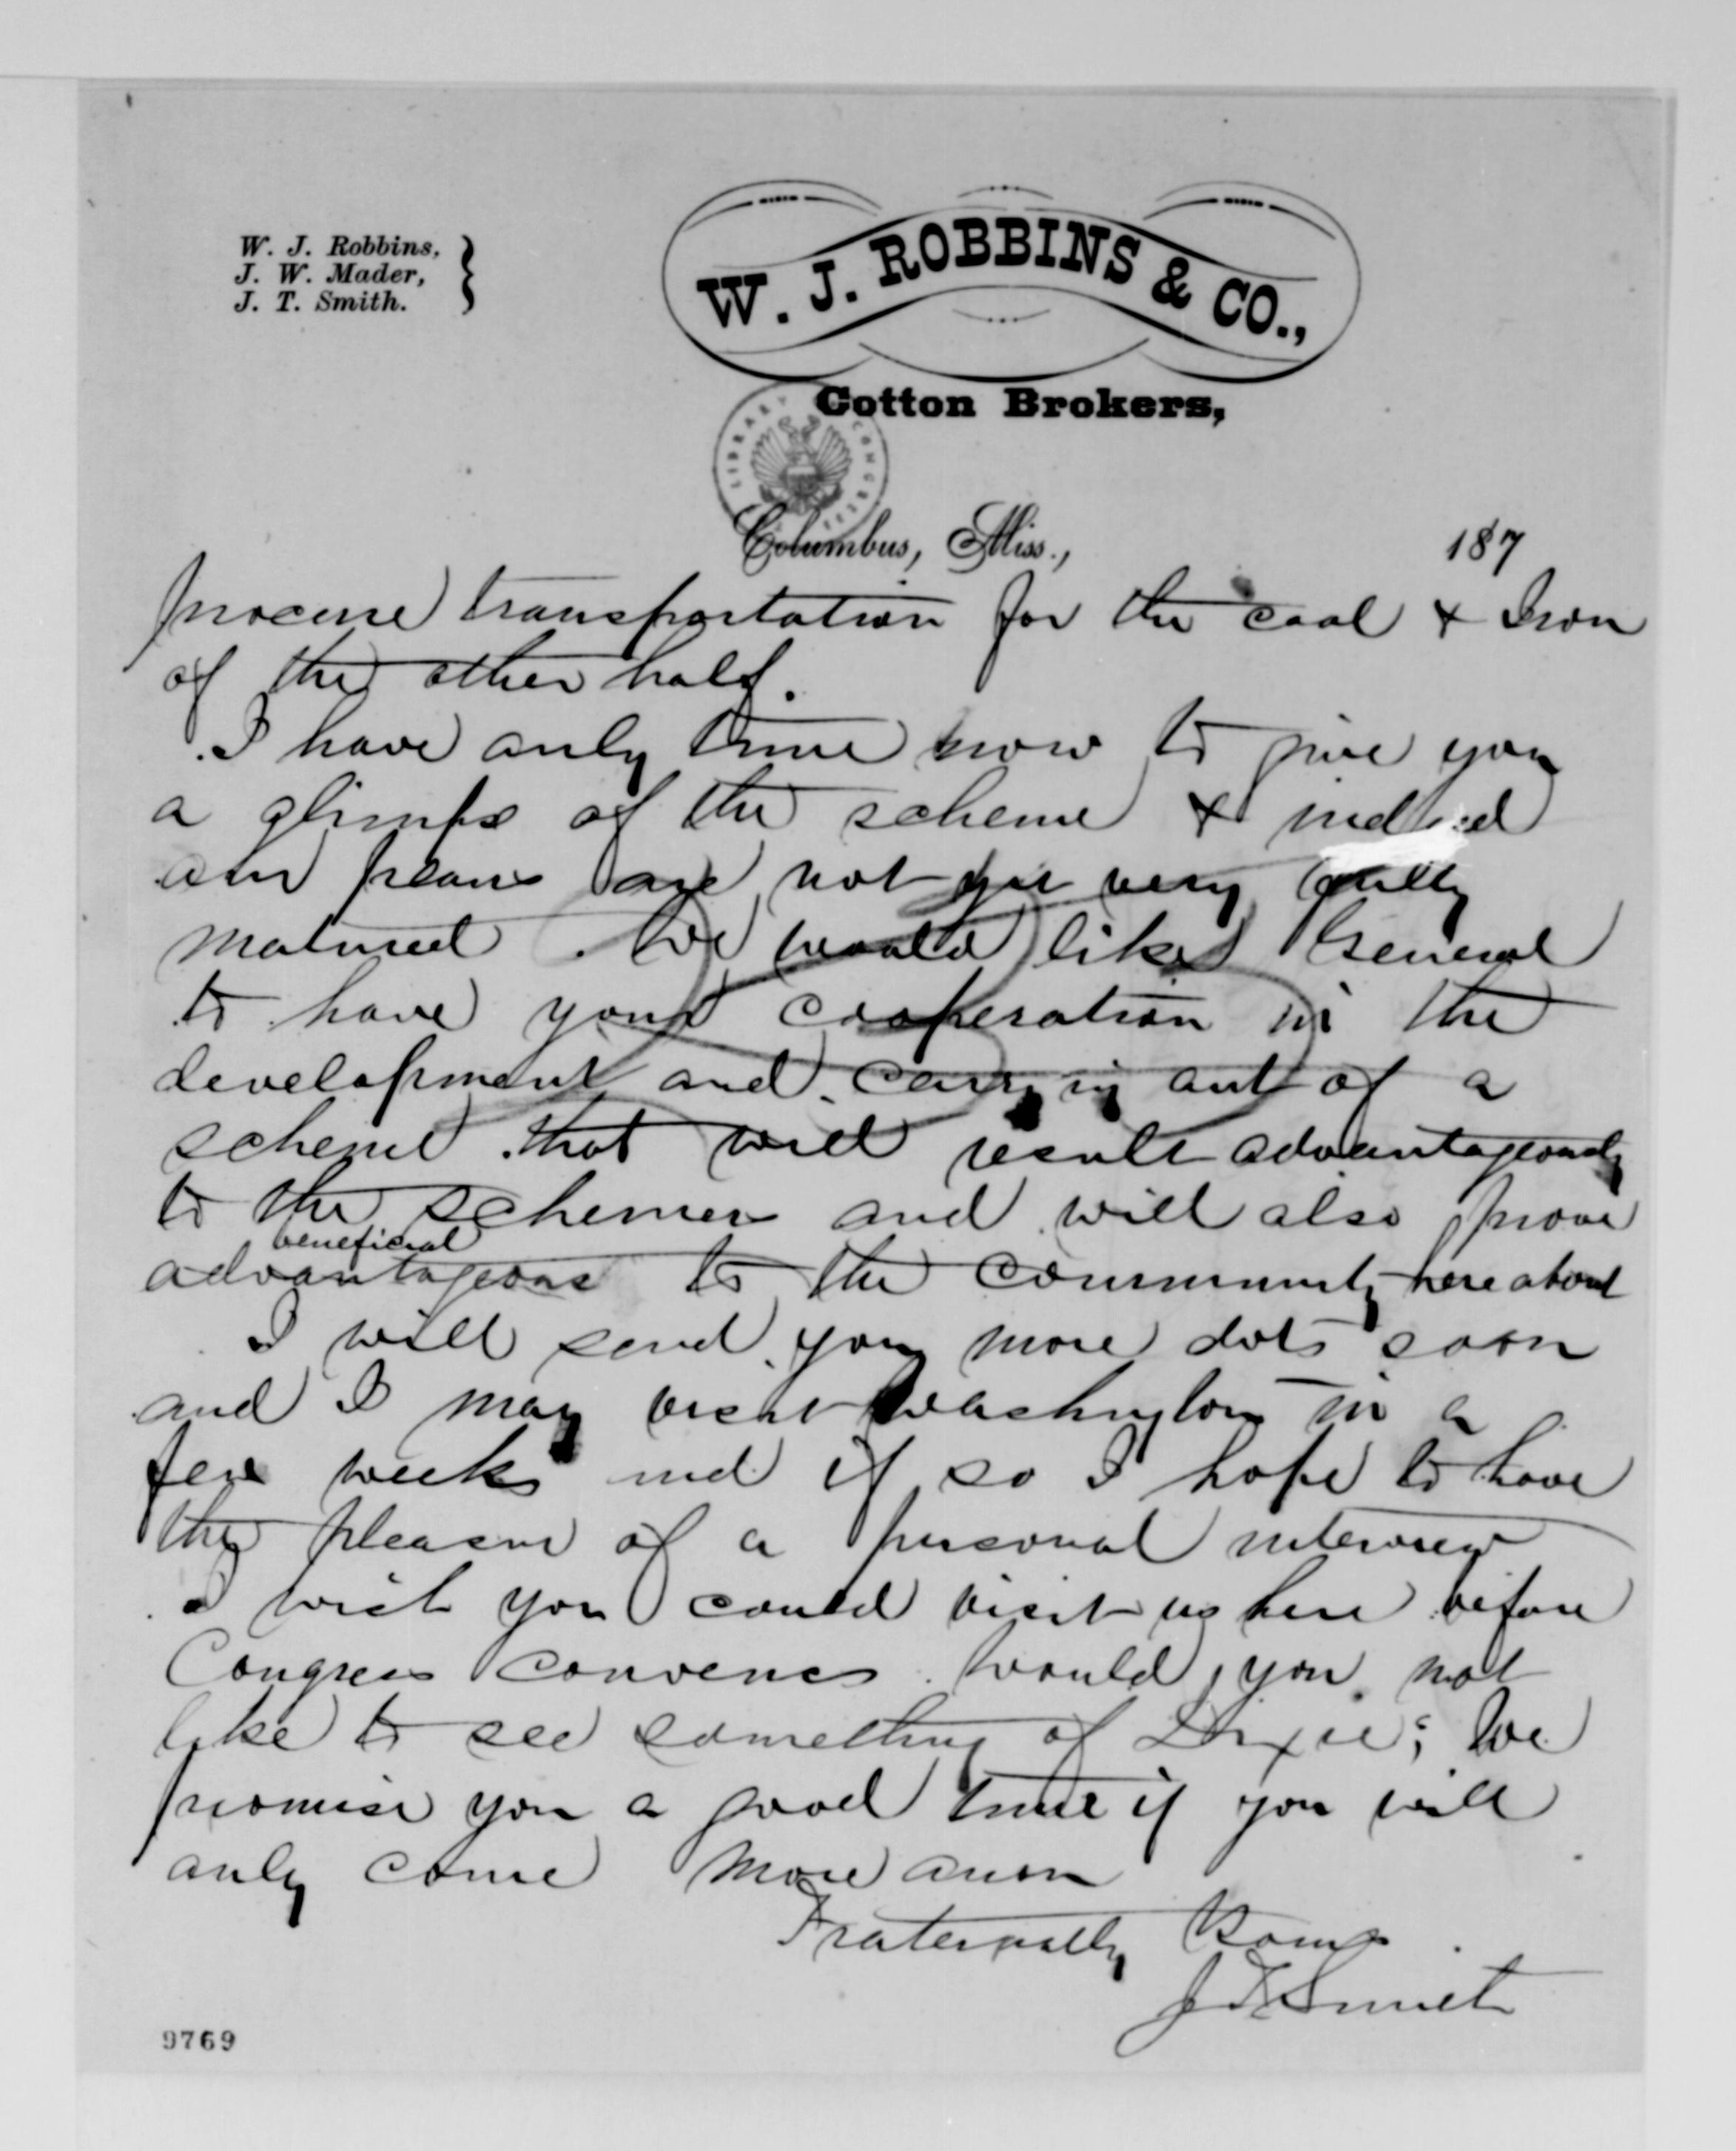 W. J. Robbins,
J. W. Mader,
J. T. Smith.
W. J. ROBBINS & CO.,
Cotton Brokers,
LIBRARY CONGRESS
Columbus, Miss., 187
procure transportation for the coal & Iron
of the other half.
I have only time now to give you
a glimps of the scheme & indeed
our plans are not yet very fully
matured. We would like General
to have your cooperation in the
development and carrying out of a
scheme that will result advantageously
to the schemers and will also prove
beneficial
advantageous to the community hereabout
I will send you more dots soon
and I may visit Washington in a
few weeks and if so I hope to have
the pleasure of a personal interview
I wish you could visit us here before
Congress convenes. Would you not
like to see something of Dixie; We
promise you a good time if you will
only come More anon
Fraternally Yours
J T Smith
9769